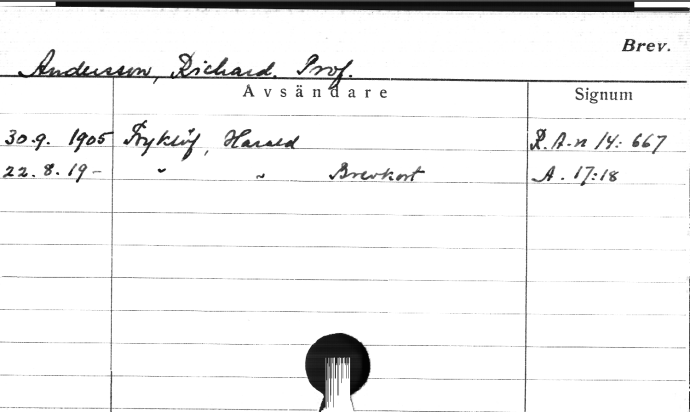 Brev.
Andersson, Richard. Prof.
Avsändare Signum
30.9. 1905 Fryklöf, Harald R.A-n 14: 667
22.8.19- " " Brevkort A. 17:18